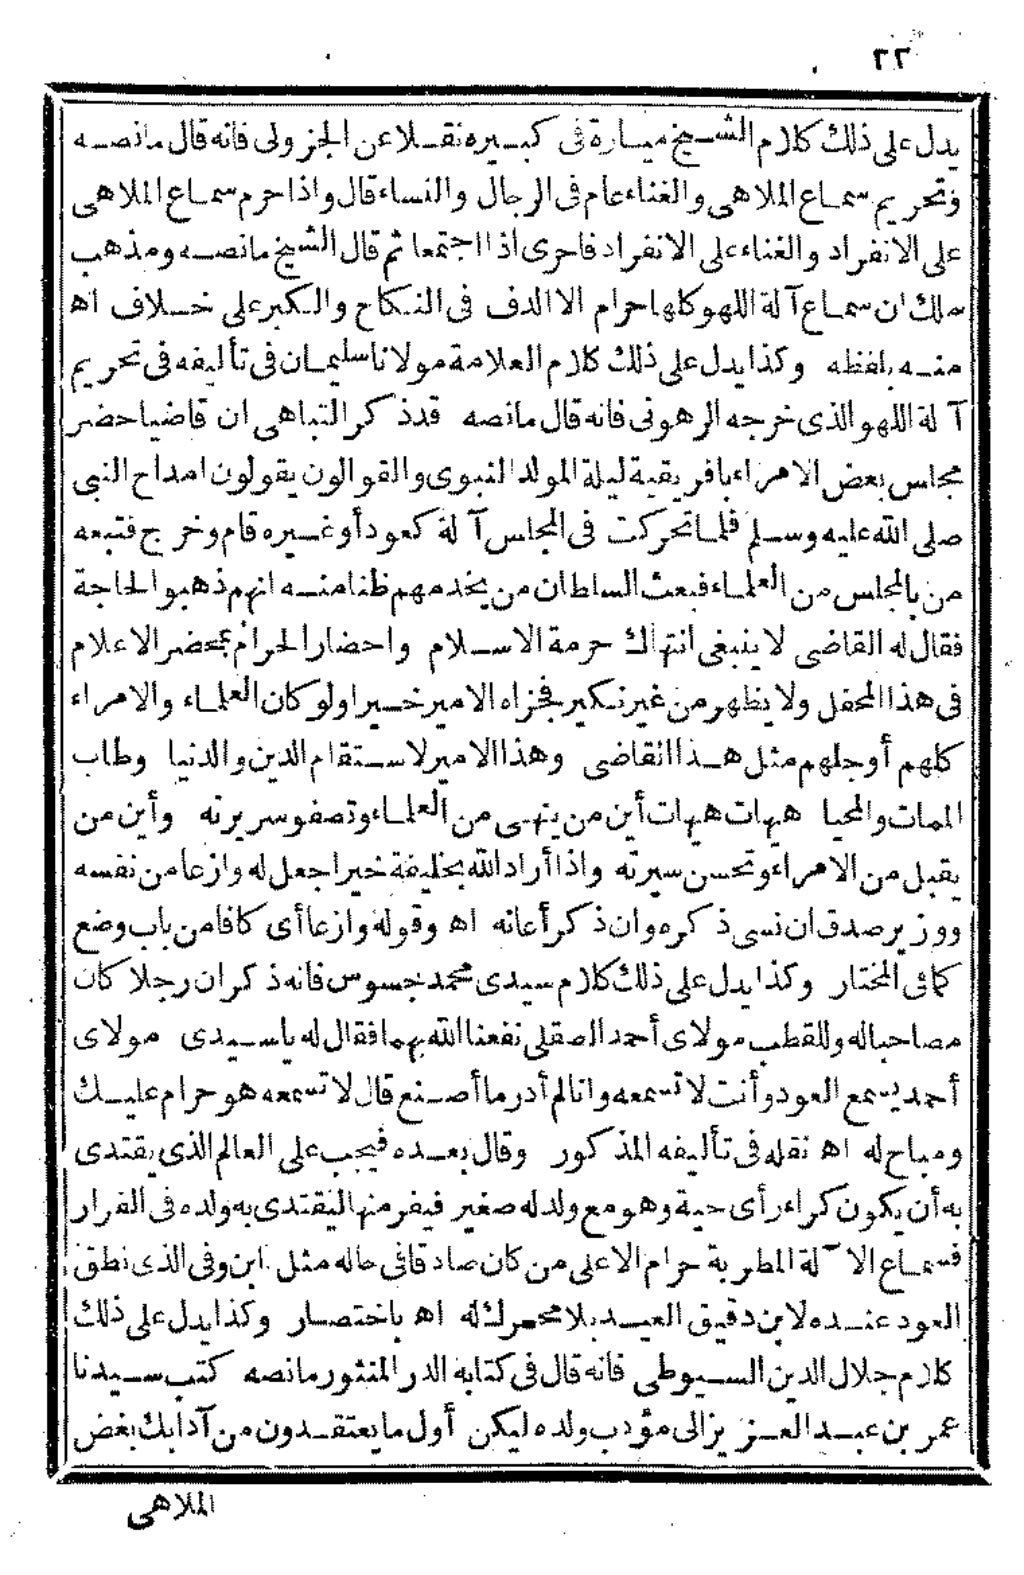 ٢٢
يدل على ذلك كلام الشيخ ميارة فى كبيره نقلا عن الجزولى فانه قال مانصه
وتحريم سماع الملاهى والغناء عام فى الرجال والنساء قال واذا حرم سماع الملاهى
على الانفراد والغناء على الانفراد فاحرى اذا اجتمعا ثم قال الشيخ مانصه ومذهب
ملك ان سماع آلة اللهو كلها حرام الا الدف فى النكاح والكبر على خلاف اه
منه بلفظه وكذا يدل على ذلك كلام العلامة مولانا سليمان فى تأليفه فى تحريم
آلة اللهو الذى خرجه الرهونى فانه قال مانصه قد ذكر التباهى ان قاضيا حضر
مجلس بعض الامراء بافريقية ليلة المولد النبوى والقوالون يقولون امداح النبى
صلى الله عليه وسلم فلما تحركت فى المجلس آلة كعود أو غيره قام وخرج فتبعه
من بالمجلس من العلماء فبعث السلطان من يخدمهم ظنا منه انهم ذهبوا لحاجة
فقال له القاضى لا ينبغى انتهاك حرمة الاسلام واحضار الحرام بمحضر الاعلام
فى هذا المحفل ولا يظهر من غير نكير فجزاه الامير خيرا ولو كان العلماء والامراء
كلهم أو جلهم مثل هذا القاضى وهذا الامير لاستقام الدين والدنيا وطاب
الممات والمحيا هيهات هيهات أين من ينهى من العلماء وتصفو سريرته وأين من
يقبل من الامراء وتحسن سيرته واذا أراد الله بخليفة خيرا جعل له وازعا من نفسه
ووزير صدق ان نسى ذكره وان ذكر أعانه اه وقوله وازعا أى كافا من باب وضع
كما فى المختار وكذا يدل على ذلك كلام سيدى محمد جسوس فانه ذكر ان رجلا كان
مصاحبا له وللقطب مولاى أحمد الصقلى نفعنا الله بهما فقال له ياسيدى مولاى
أحمد يسمع العود وأنت لا تسمعه وانا لم أدر ما أصنع قال لا تسمعه هو حرام عليك
ومباح له اه نقله فى تأليفه المذكور وقال بعده فيجب على العالم الذى يقتدى
به أن يكون كراء رأى حية وهو مع ولد له صغير فيفر منها ليقتدى به ولده فى الفرار
فسماع الآلة المطربة حرام الا على من كان صادقا فى حاله مثل ابن وفى الذى نطق
العود عنده لابن دقيق العيد بلا محرك له اه باختصار وكذا يدل على ذلك
كلام جلال الدين السيوطى فانه قال فى كتابه الدر المنثور مانصه كتب سيدنا
عمر بن عبد العزيز الى مؤدب ولده ليكن أول ما يعتقدون من آدابك بغض
الملاهى